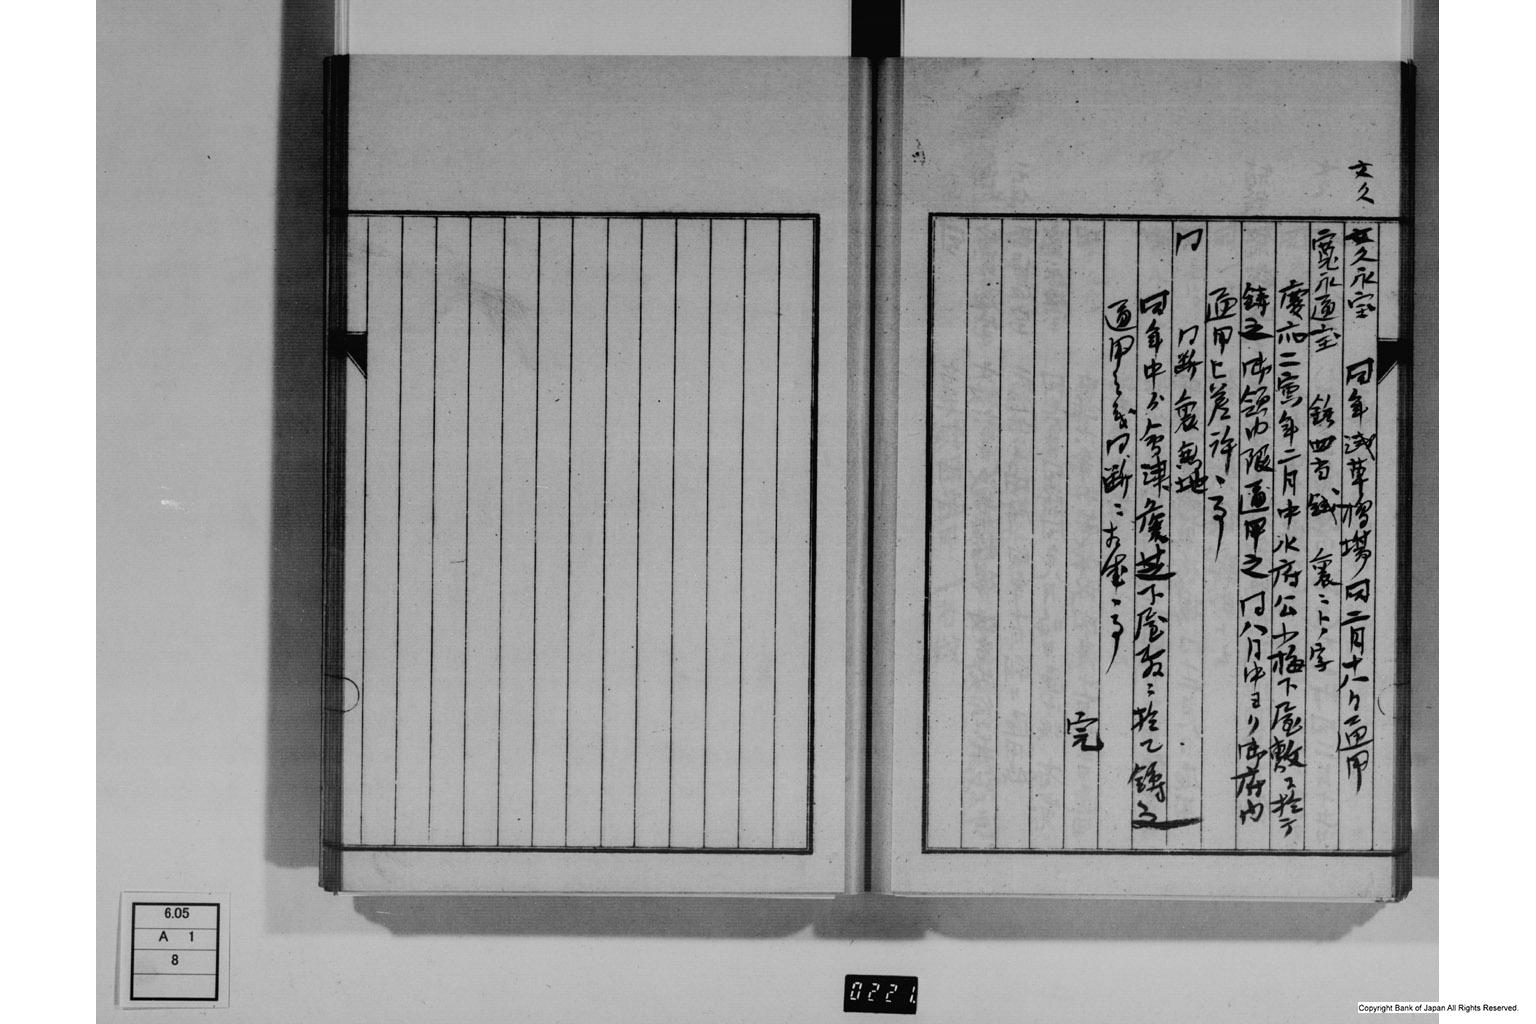 文久
文久永宝 同年浅草橋場 同二月十八日ヨリ通用
寛永通宝 鉄四文銭 裏ニトノ字
慶応二寅年二月中水府公小梅下屋敷ニ於テ
鋳之 御領内限通用之 同八月中ヨリ御府内
通用上差許ノ事
同 同断 裏無地
同年中 会津 下屋敷ニ於て鋳之
通用之義同断ニ
完
6.05
A 1
8
0221.
Copyright Bank of Japan All Rights Reserved.